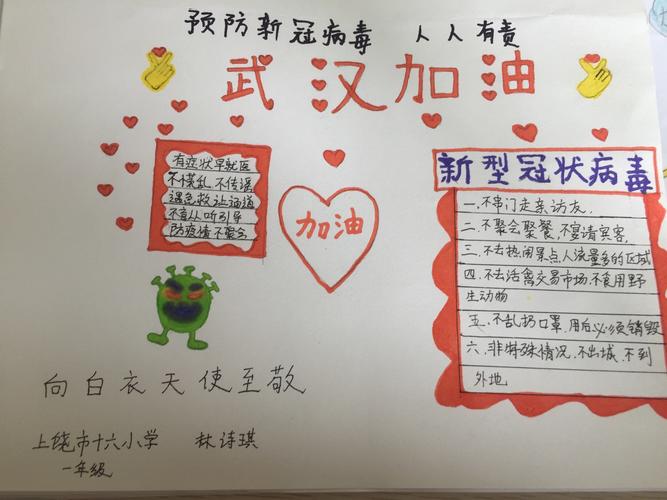 预防新冠病毒 人人有责
武汉加油
有症状早就医
不慌乱 不传谣
遇危救让通道
不盲从听引导
防疫情不聚会
加油
新型冠状病毒
一.不串门走亲访友,
二.不聚会聚餐,不宴请宾客,
三.不去热闹景点人流量多的区域
四.不去活禽交易市场.不食用野
生动物
五.不乱扔口罩,用后必须销毁
六.非特殊情况,不出城,不到
外地
向白衣天使至敬
上饶市十六小学 林诗琪
一年级